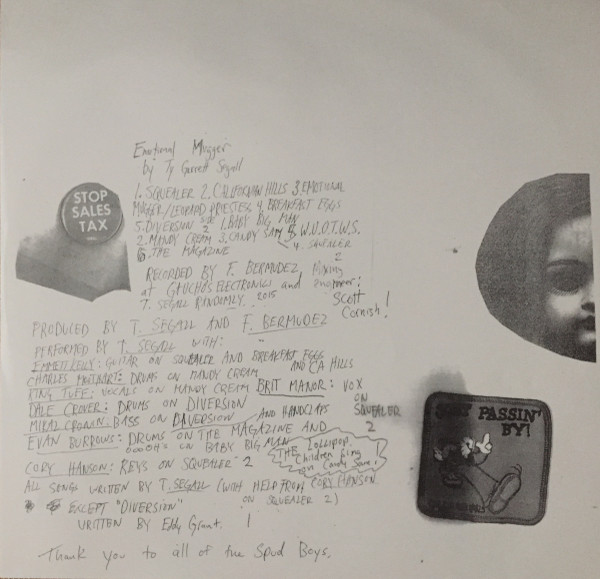 Emotional Mugger
by Ty Garrett Segall
1. SQUEALER 2. CALIFORNIAN HILLS 3. EMOTIONAL
MUGGER/LEOPARD PRIESTESS 4. BREAKFAST EGGS
5. DIVERSION SIDE 2 1. BABY BIG MAN
2. MANDY CREAM 3. CANDY SAM 5. W.U.O.T.W.S.
4. SQUEALER 2
6. THE MAGAZINE
RECORDED BY F. BERMUDEZ,
at GAUCHOS ELECTRONICS and
T. SEGALL RANDOMLY. 2015
Mixing
Scott
Cornish!
STOP
SALES
TAX
PRODUCED BY T. SEGALL AND F. BERMUDEZ
PERFORMED BY T. SEGALL WITH:
EMMETT KELLY: GUITAR ON SQUEALER AND BREAKFAST EGGS
AND CA HILLS
CHARLES MOOTHART: DRUMS ON MANDY CREAM
KING TUFF: VOCALS ON MANDY CREAM BRIT MANOR: VOX
ON
SQUEALER
2
DALE CROVER: DRUMS ON DIVERSION
MIKAL CRONIN: BASS ON DIVERSION AND HANDCLAPS
EVAN BURROWS: DRUMS ON THE MAGAZINE AND
OOOOH'S ON BABY BIG MAN
THE Lollipop
Children Sing
on Candy Sam!
CORY HANSON: KEYS ON SQUEALER 2
ALL SONGS WRITTEN BY T. SEGALL (WITH HELP FROM CORY HANSON
ON SQUEALER 2)
EXCEPT "DIVERSION"
WRITTEN BY Eddy Grant.
Thank you to all of the Spud Boys.
JUST PASSIN'
BY!